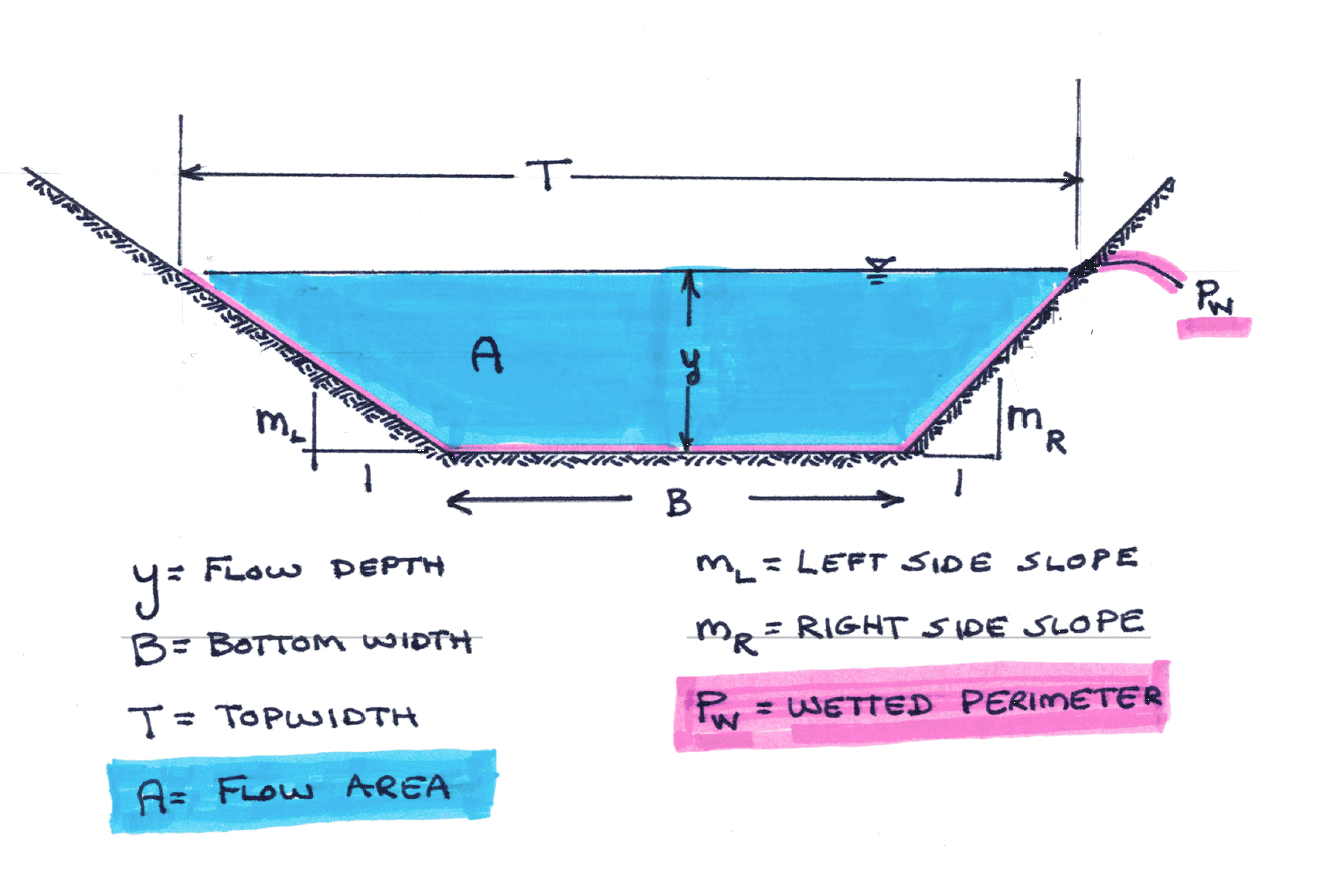 T
A
y
P_W
m_L
1
m_R
1
B
y = FLOW DEPTH
B = BOTTOM WIDTH
T = TOPWIDTH
A = FLOW AREA
m_L = LEFT SIDE SLOPE
m_R = RIGHT SIDE SLOPE
P_W = WETTED PERIMETER